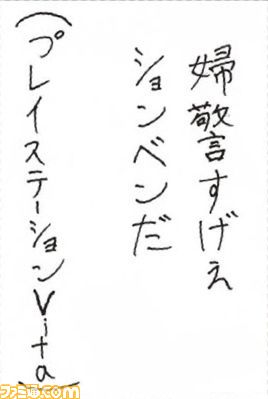 婦警すげぇ
ションベンだ
(プレイステーションVita)
ファミ通.com